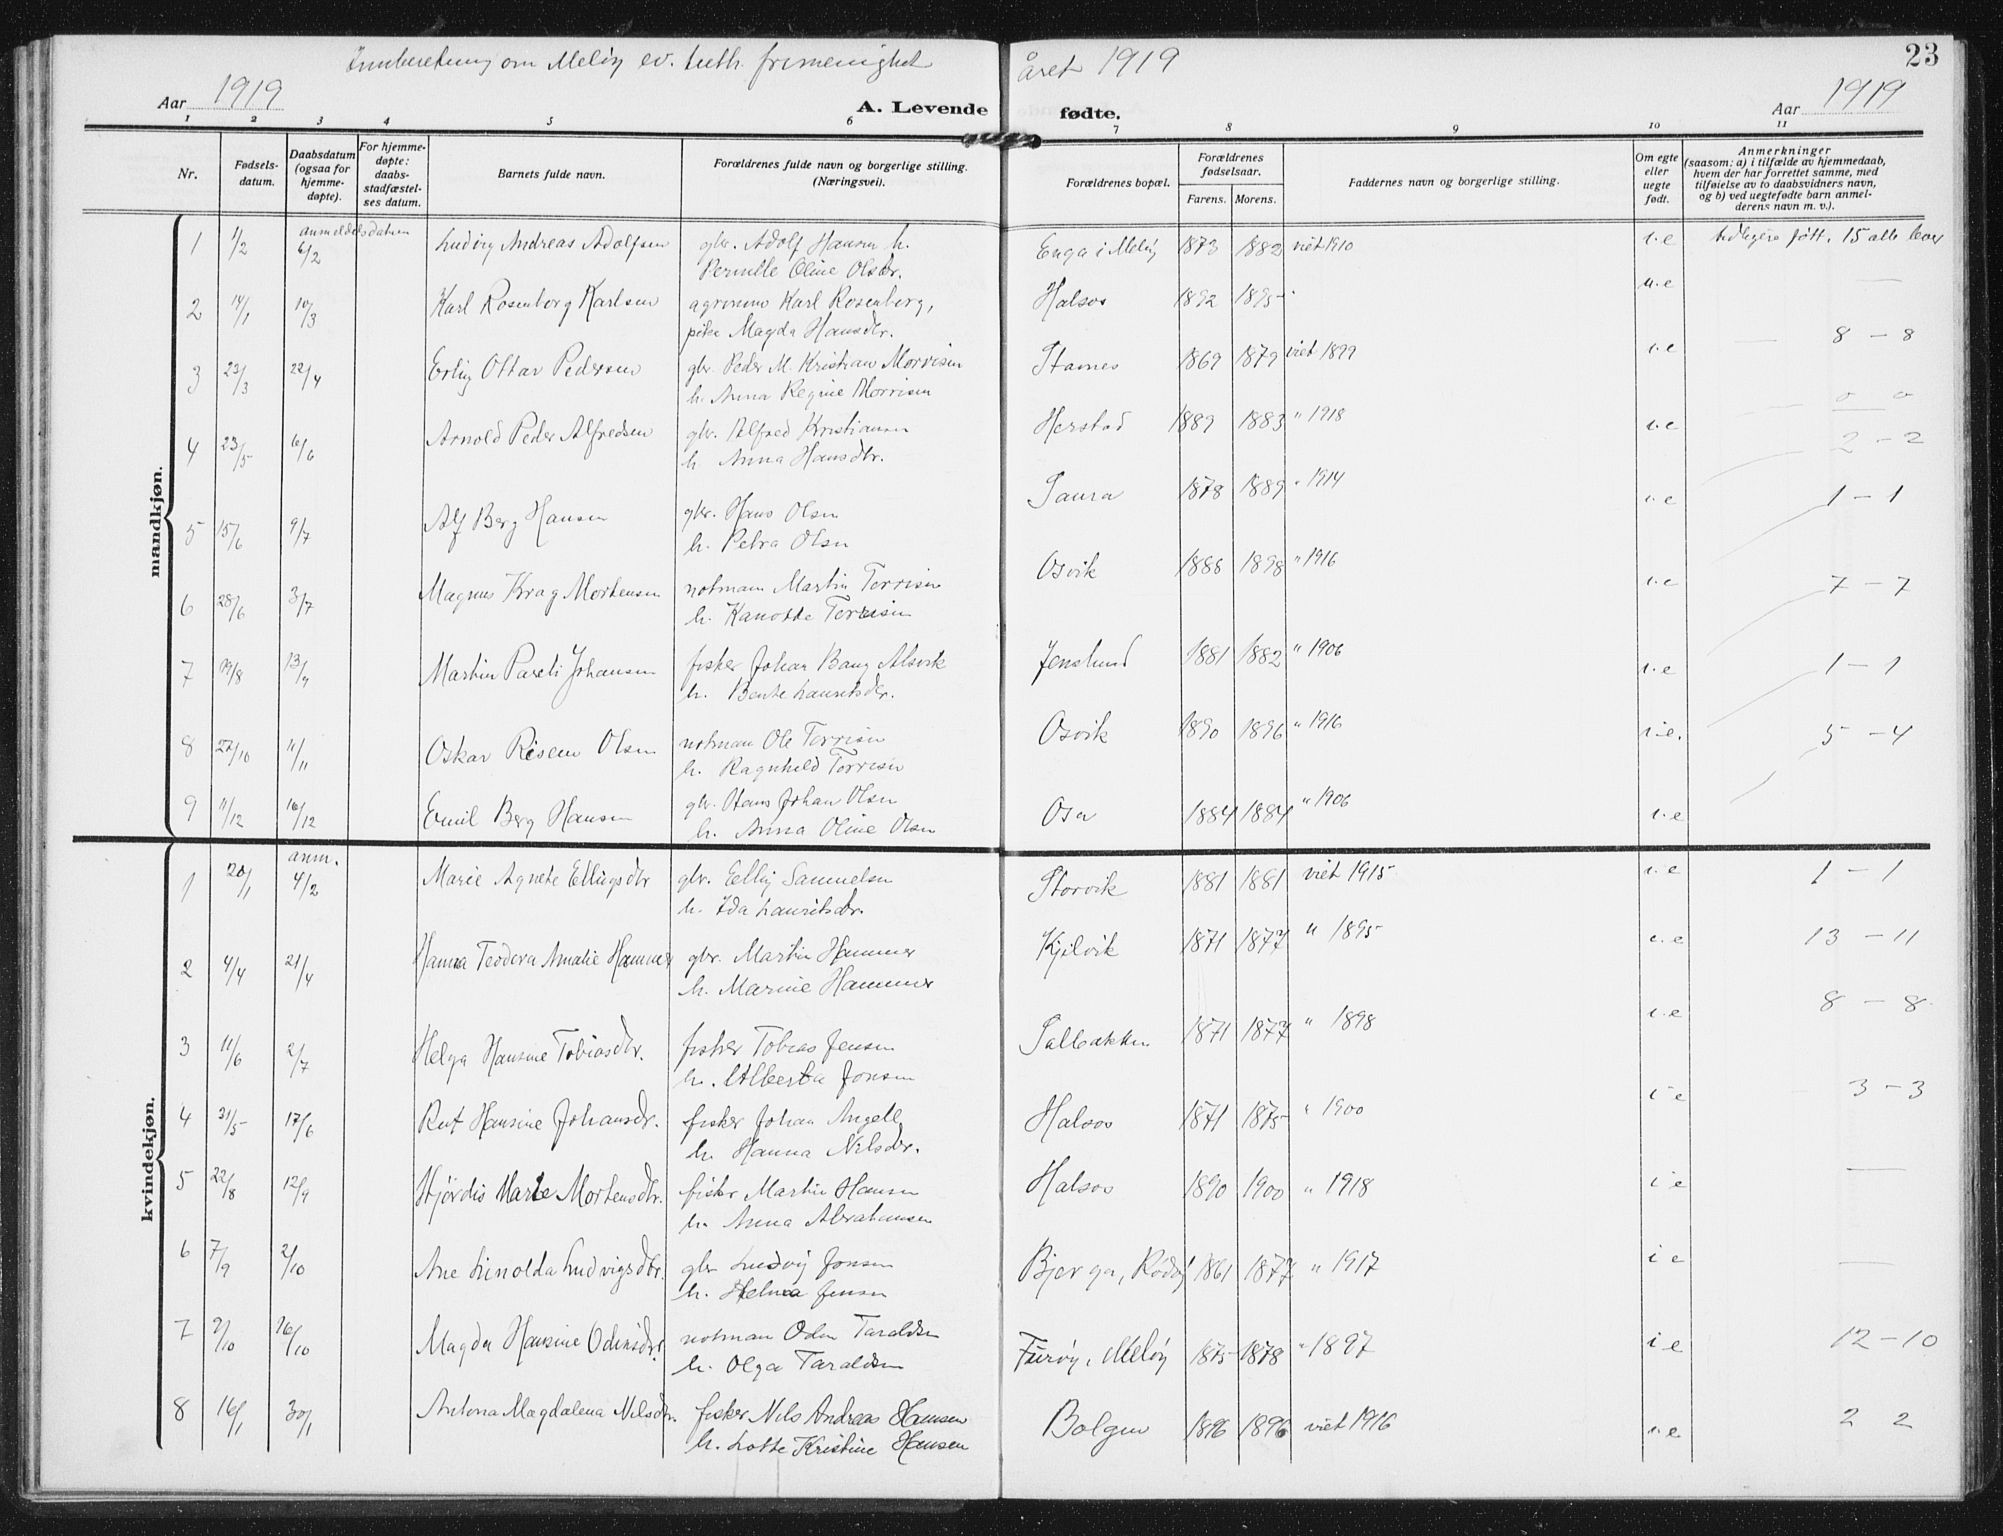 Innberetning om Meløy ev. luth. frimenighet året 1919
23
Aar 1919
A. Levende fødte.
Aar 1919
1 2 3 4 5 6 7 8 9 10 11
Nr.
Fødsels-
datum.
Daabsdatum
(ogsaa for
hjemme-
døpte).
For hjemme-
døpte:
daabs-
stadfæstel-
ses datum.
Barnets fulde navn.
Forældrenes fulde navn og borgerlige stilling.
(Næringsvei).
Forældrenes bopæl.
Forældrenes
fødselsaar.
Farens. Morens.
Faddernes navn og borgerlige stilling.
Om egte
eller
uegte
født.
Anmerkninger
(saasom: a) i tilfælde av hjemmedaab,
hvem der har forrettet samme, med
tilføielse av to daabsvidners navn,
og b) ved uegtefødte barn anmel-
derens navn m. v.).
mandkjøn.
anmeldelsdatum
1 1/2 6/2 Ludvig Andreas Adolfsen gbr. Adolf Hansen h. Enga i Meløy 1873 1882 viet 1910 i.e tidligere født. 15 alle lever
Pernille Oline Olsdr.
2 14/1 10/3 Karl Rosenborg Karlsen agronom Karl Rosenborg, Halsos 1892 1895 u.e —
pike Magda Hansdtr.
3 23/3 22/4 Erling Ottar Pedersen gbr. Peder M. Kristian Morrisen Stamnes 1869 1879 viet 1899 i.e 8 - 8
h. Anna Regine Morrisen
4 23/5 6/6 Arnold Peder Alfredsen gbr. Alfred Kristiansen Herstad 1889 1883 " 1918 i.e 0 0
h. Anna Hansdtr.
2 - 2
5 15/6 9/7 Alf Berg Hansen gbr. Hans Olsen Saura 1878 1889 " 1914 i.e 1 - 1
h. Petra Olsen
6 28/6 3/7 Magnus Krag Mortensen notmann Martin Torrisen Osvik 1888 1898 " 1916 i.e 7 - 7
h. Kanotte Torrisen
7 19/8 13/9 Martin Pareli Johansen fisker Johan Bang Alsvik Jenslund 1881 1882 " 1906 i.e 1 - 1
h. Bente Lauritsdr.
8 27/10 11/11 Oskar Risem Olsen notman Ole Torrisen Osvik 1890 1896 " 1916 i.e. 5 - 4
h. Ragnhild Torrisen
9 11/12 16/12 Emil Berg Hansen gbr. Hans Johan Olsen Osa 1884 1884 " 1906 i.e
h. Anna Oline Olsen
kvindekjøn.
anm.
1 20/1 4/2 Marie Agnete Ellingsdtr gbr. Elling Samuelsen Storvik 1881 1881 viet 1915 i.e 1 - 1
h. Ida Lauritsdr.
2 4/4 21/4 Hanna Teodora Amalie Hammer gbr. Martin Hammer Kjelvik 1871 1877 " 1895 i.e 13 - 11
h. Marine Hammer
3 11/6 2/7 Helga Hansine Tobiasdtr. fisker Tobias Jensen Salbakken 1871 1877 " 1898 i.e 8 - 8
h. Alberta Jonsen
4 31/5 17/6 Rut Hansine Johansdr. fisker Johan Angell Halsos 1871 1875 " 1900 i-e 3 - 3
h. Hanna Nilsdr.
5 22/8 12/9 Hjørdis Marie Mortensdtr. fisker Martin Hansen Halsos 1890 1900 " 1918 i e —
h. Anna Abrahamsen
6 7/9 2/10 Ane Linolda Ludvigsdtr. gbr Ludvig Jonsen Bjerga, Rødøy 1861 1877 " 1917 i e —
h. Helma Jensen
7 2/10 16/10 Magda Hansine Odinsdtr. notman Odin Taraldsen Furøy, Meløy 1875 1878 " 1897 i-e 12 - 10
h. Olga Taraldsen
8 16/1 30/1 Antona Magdalena Nilsdtr. fisker Nils Andreas Hansen Bolgen 1896 1896 viet 1916 i.e 2 2
h. Lotte Kristine Hansen